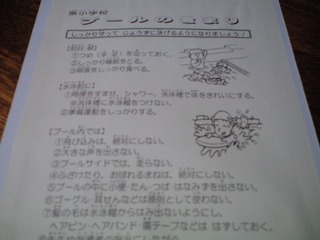 小学校
プールのきまり
しっかり守って じょうずに泳げるようになりましょう！
【前日・朝】
①つめ（手・足）を切っておく。
②しっかり睡眠をとる。
③朝食をしっかり食べる。
【水泳前に】
①用便をすませ、シャワー、洗体槽で体をきれいにする。
※洗体槽に水泳帽をつけない。
②準備運動をしっかりする。
【プール内では】
①飛び込みは、絶対にしない。
②大きな声を出さない。
③プールサイドでは、走らない。
④ふざけたり、おぼれるまねは、絶対にしない。
⑤プールの中に小便・たん・つば・はなみずを出さない。
⑥ゴーグル・耳せんなどは原則として使わない。
⑦髪の毛は水泳帽からはみ出ないようにし、
ヘアピン・ヘアバンド・傷テープなどは はずしておく。